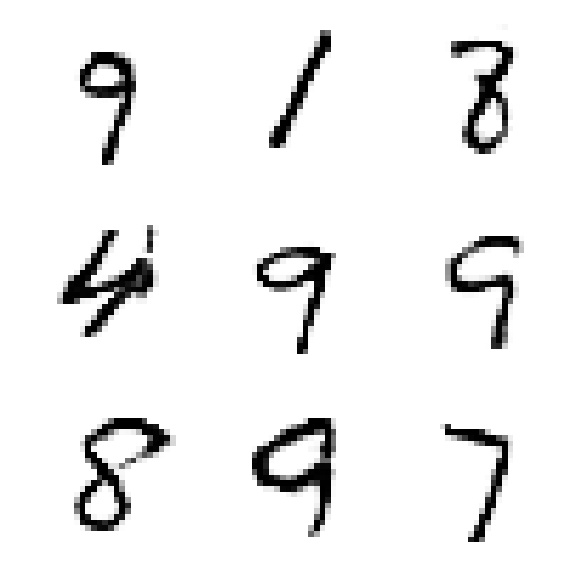 9 1 8
4 9 9
8 9 7